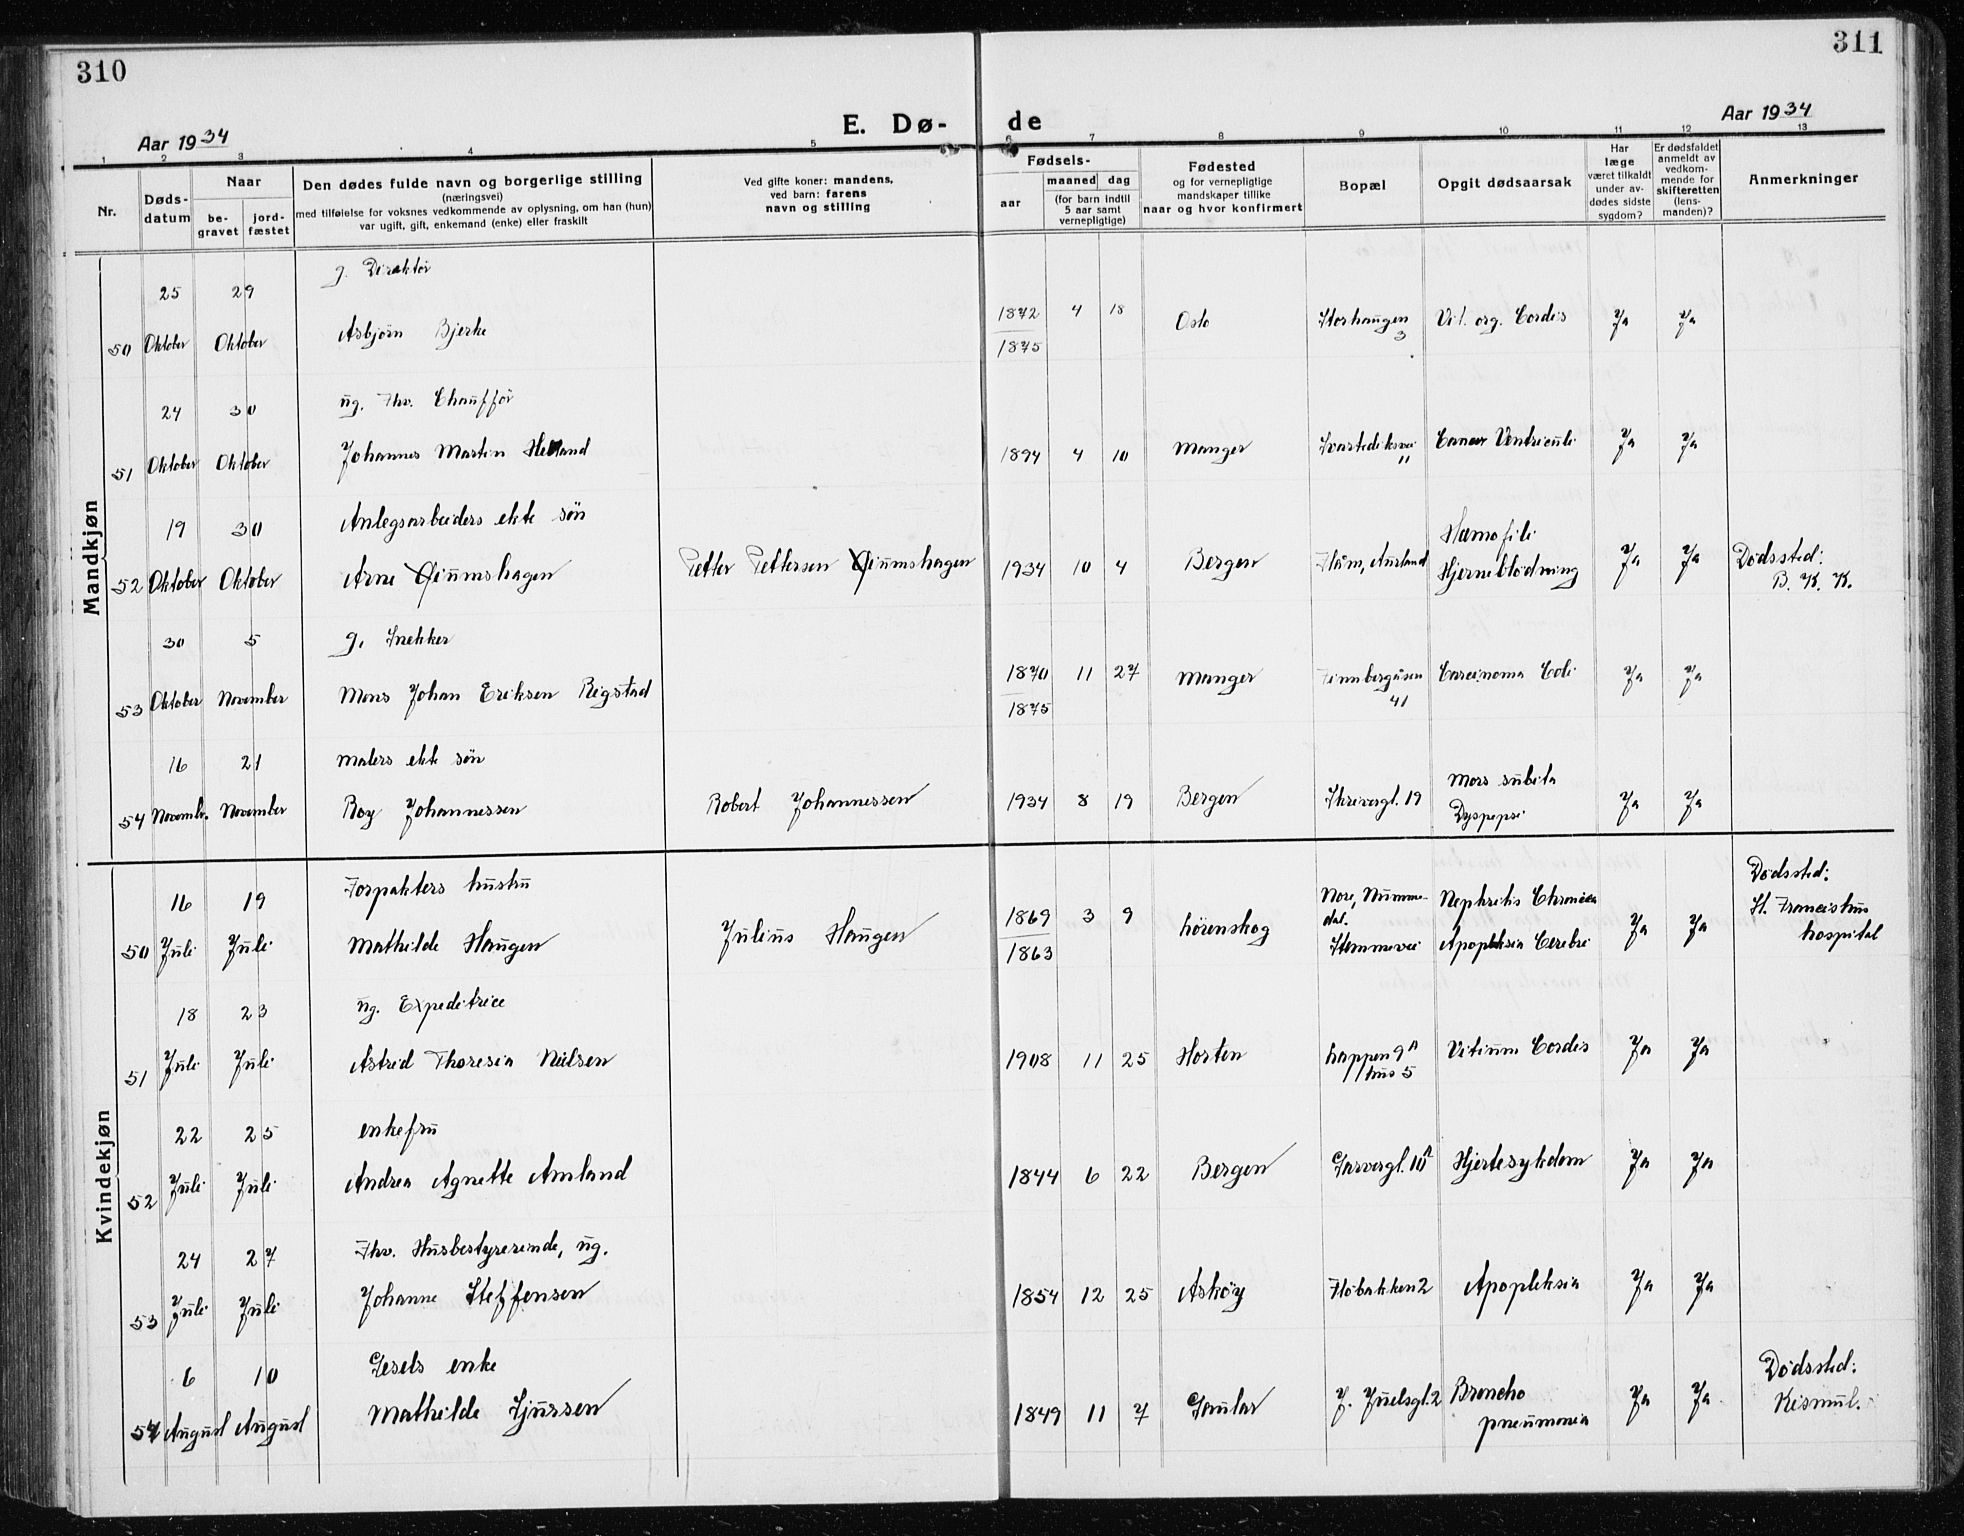 310
311
E. Dø-
de
Aar 1934
Aar 1934
1 2 3 4 5 6 7 8 9 10 11 12 13
Nr.
Døds-datum
Naar
be-gravet
jord-fæstet
Den dødes fulde navn og borgerlige stilling
(næringsvei)
med tilføielse for voksnes vedkommende av oplysning, om han (hun)
var ugift, gift, enkemand (enke) eller fraskilt
Ved gifte koner: mandens,
ved barn: farens
navn og stilling
Fødsels-
aar
maaned dag
(for barn indtil
5 aar samt
vernepligtige)
Fødested
og for vernepligtige
mandskaper tillike
naar og hvor konfirmert
Bopæl
Opgit dødsaarsak
Har
læge
været tilkaldt
under av-
dødes sidste
sygdom?
Er dødsfaldet
anmeldt av
vedkom-
mende for
skifteretten
(lens-
manden)?
Anmerkninger
Mandkjøn
25 29 g. Direktør
50 Oktober Oktober Asbjørn Bjerke 1872 4 18 Oslo Storhaugen 3 Vit. org. Cordis Ja Ja
1875
24 30 ug. Fhv. Chauffør
51 Oktober Oktober Johannes Martin Helland 1894 4 10 Manger 11 Cancer Ventriculi Ja Ja
19 30 Anlegsarbeiders ekte søn
52 Oktober Oktober Arne Petter Pettersen 1934 10 4 Bergen Flåm, Aurland Hæmofili Hjerneblødning Ja Ja Dødssted: B. K. K.
30 5 g. Snekker
53 Oktober November Mons Johan Eriksen Rigstad 1870 11 27 Manger Finnbergåsen 41 Carcinoma Coli Ja Ja
1875
16 21 Malers ekte søn
54 Novembr. November Roy Johannessen Robert Johannessen 1934 8 19 Bergen Skrivergt. 19 Mors subita Dyspepsi Ja Ja
Kvindekjøn
16 19 Forpakters hustru
50 Juli Juli Mathilde Haugen Julius Haugen 1869 3 9 Lørenskog Nore, Numme-dal. Stemmevei Nephritis Chronica Apopleksia Cerebri Ja Ja Dødssted: St. Franciskus hospital
1863
18 23 ug. Expeditrice
51 Juli Juli Astrid Theresia Nielsen 1908 11 25 Horten Lappen 9A hus 5 Vitium Cordis Ja Ja
22 25 enkefru
52 Juli Juli Andrea Agnette Amland 1844 6 22 Bergen Garvergt. 10A Hjertesykdom Ja Ja
24 27 Fhv. Husbestyrerinde, ug.
53 Juli Juli Johanne Steffensen 1854 12 25 Askøy Fløbakken 2 Apopleksia Ja Ja
6 10 Gesels enke
54 August August Mathilde Sjursen 1849 11 7 Gaular J. Juelsgt. 2 Broncho pneumonia Ja Ja Dødssted: Kismul.